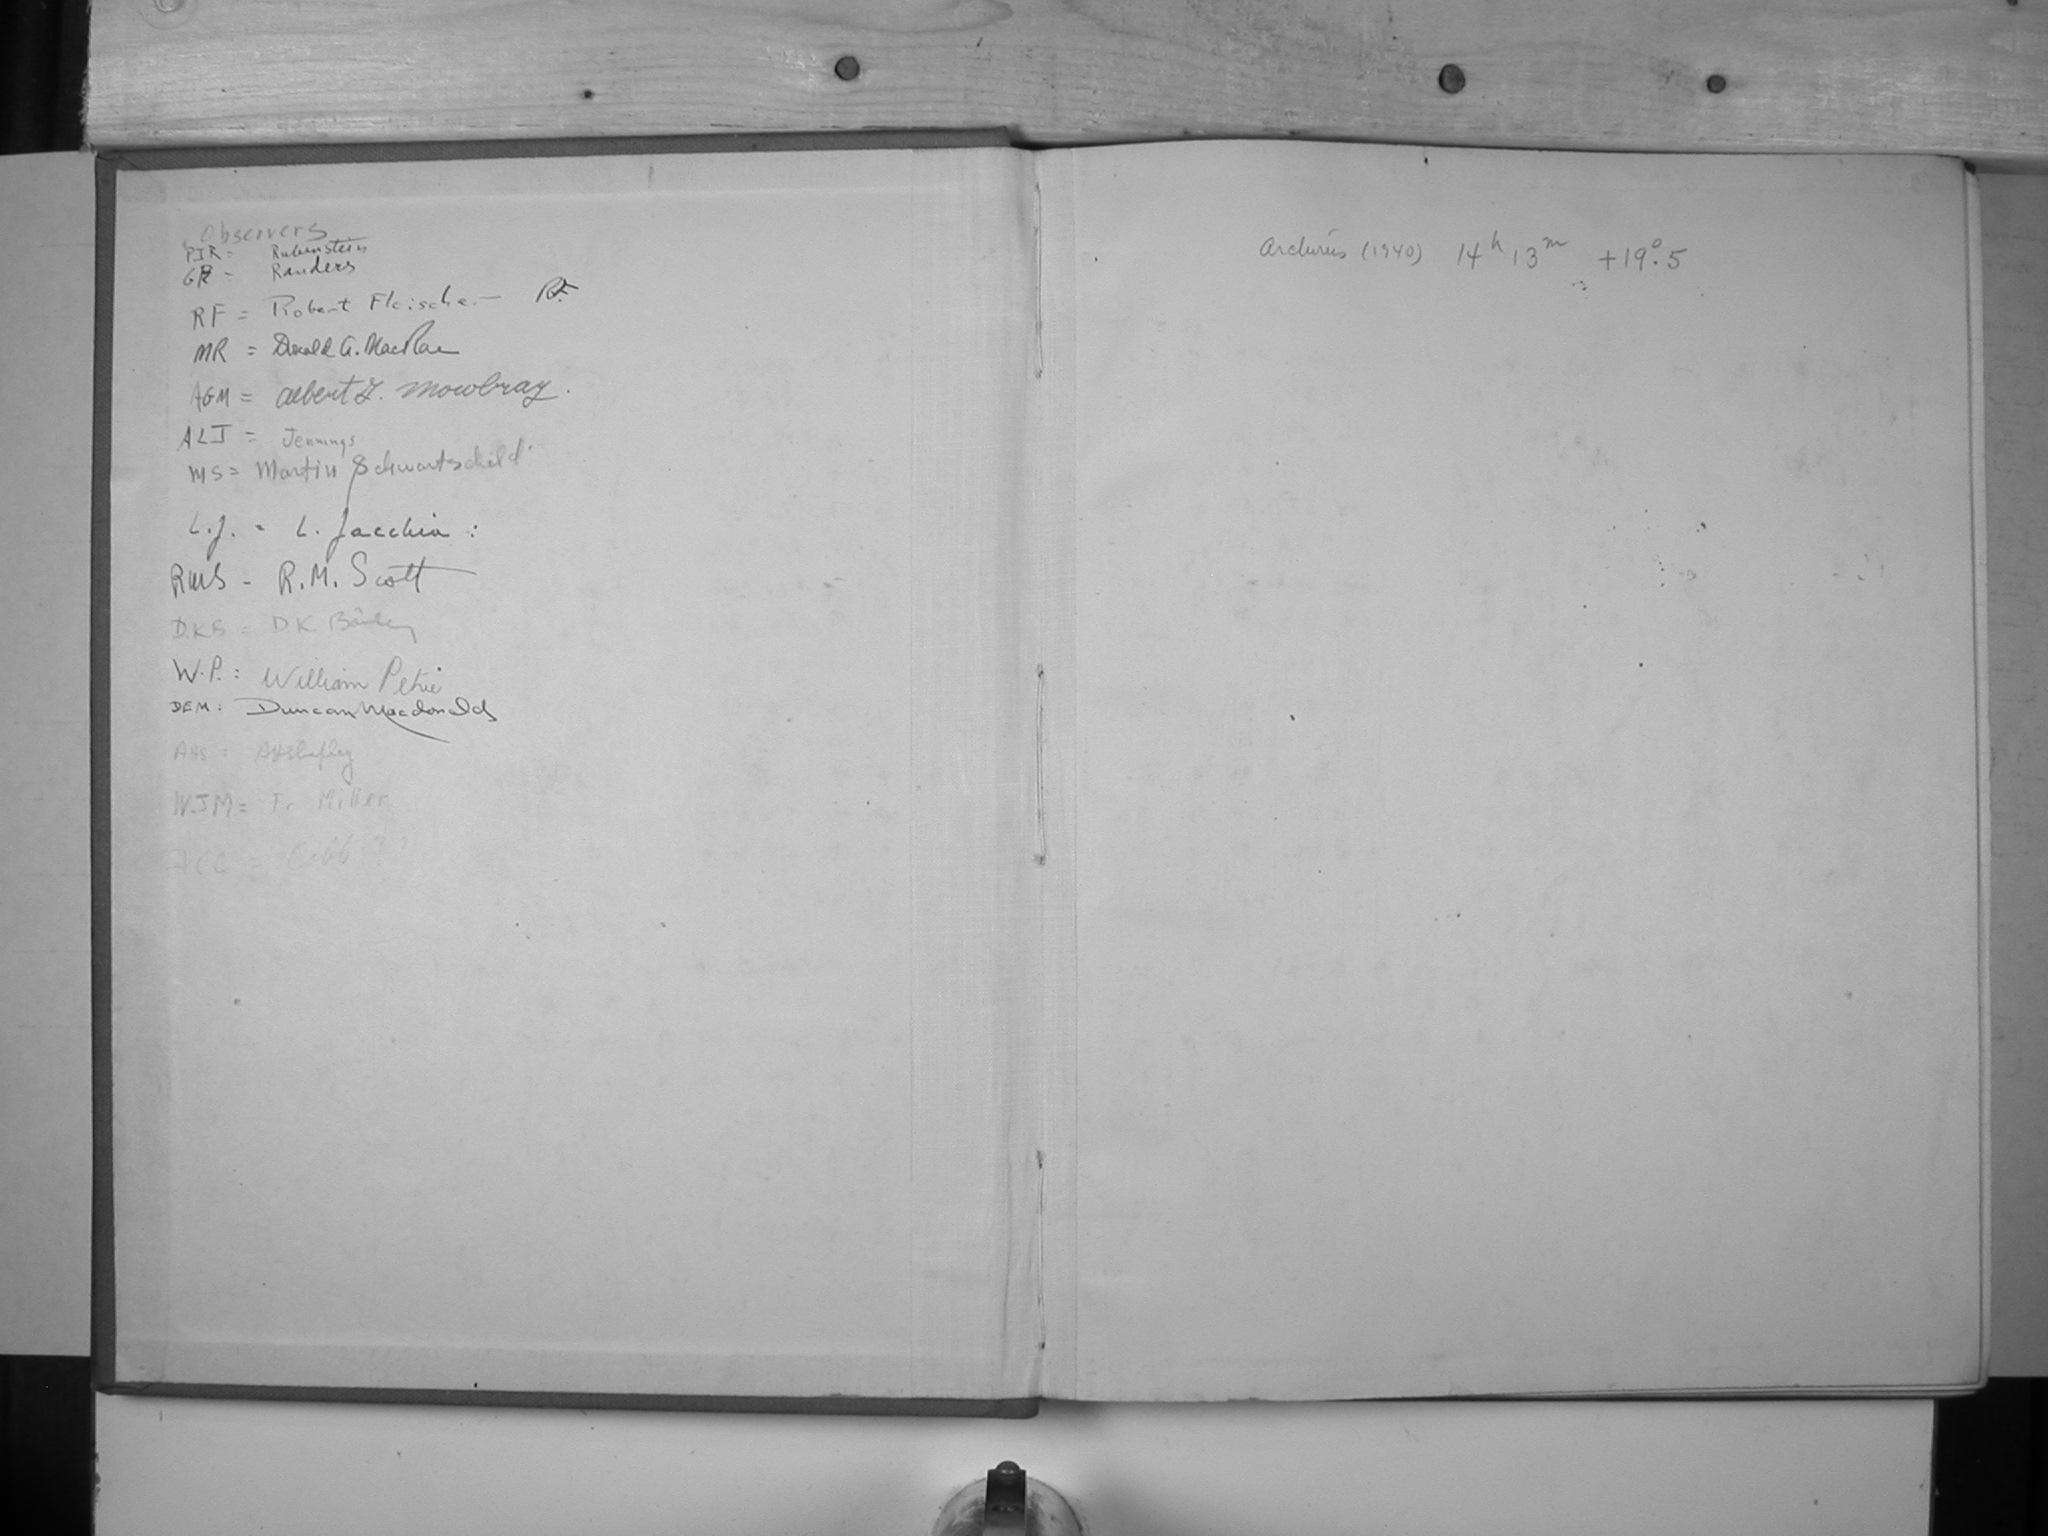 Observers
PIR = Rubenstein
GR = Randers
RF = Robert Fleischer RF
MR = Donald A. MacRae
AGM = Albert G. Mowbray.
ALJ = Jennings
MS = Martin Schwartschild
L.J. = L. Jacchia :
RMS - R.M. Scott
D.K.B = D K. Bailey
W.P. : William Petrie
DEM : Duncan Macdonald
AHS : AHShapley
WJM = Fr Miller
ACC = Cobb??
Arcturus (1940) 14h 13m +19°.5